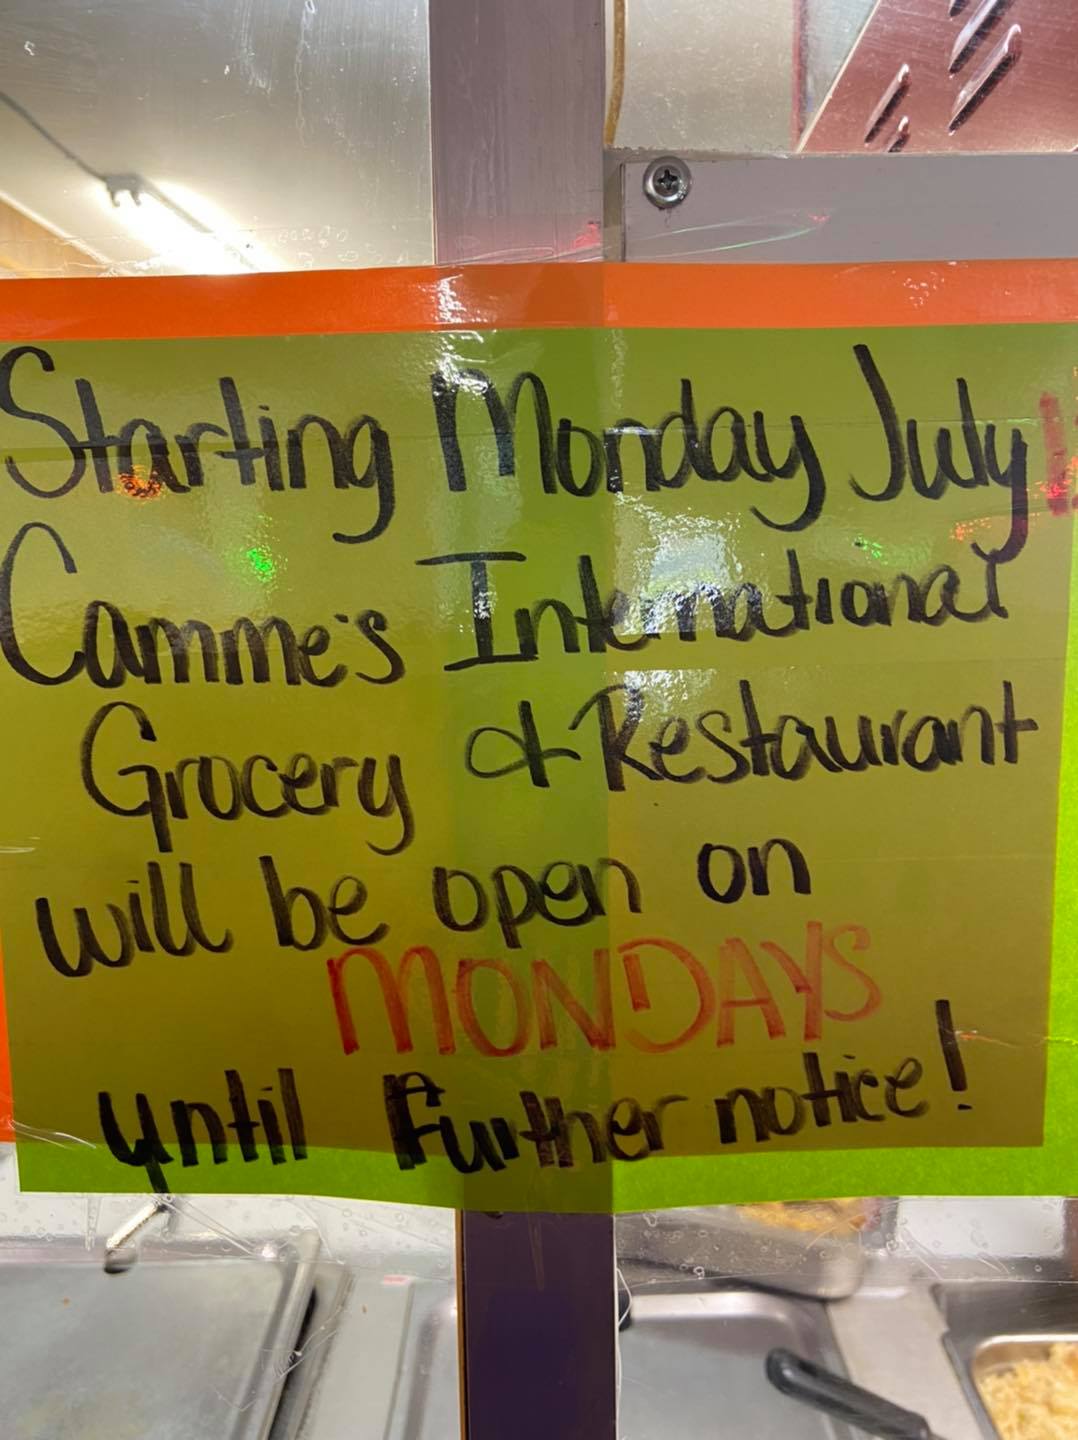 Starting Monday July
Camme's International
Grocery & Restaurant
will be open on
MONDAYS
until Further notice!